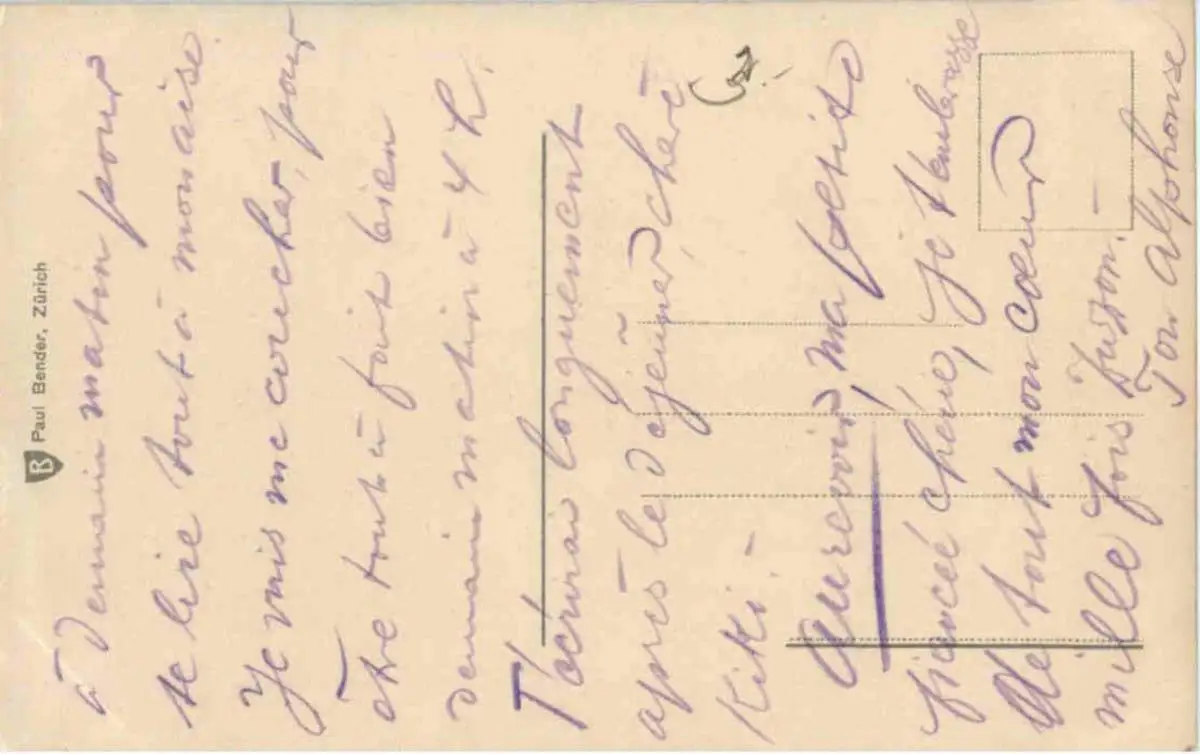 à demain matin pour
te lire tout à mon aise.
Je vais me coucher, pour
être tout à fait bien
demain matin à 4 h.
T'écrirai longuement
après le déjeuner, chère
Kiki. -
Au revoir, ma petite
fiancée chérie, je t'embrasse
de tout mon coeur
mille fois
Ton Alphonse
Paul Bender, Zürich